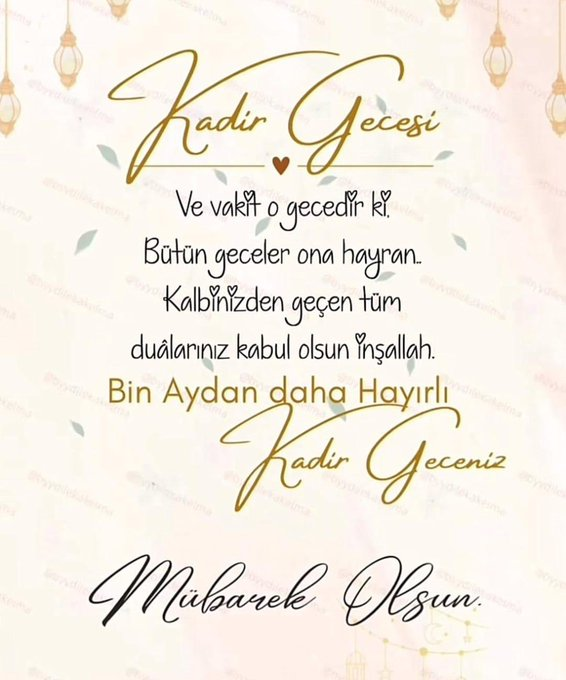 Kadir Gecesi
Ve vakit o gecedir ki,
Bütün geceler ona hayran..
Kalbinizden geçen tüm
duâlarınız kabul olsun inşallah.
Bin Aydan daha Hayırlı
Kadir Geceniz
Mübarek Olsun.